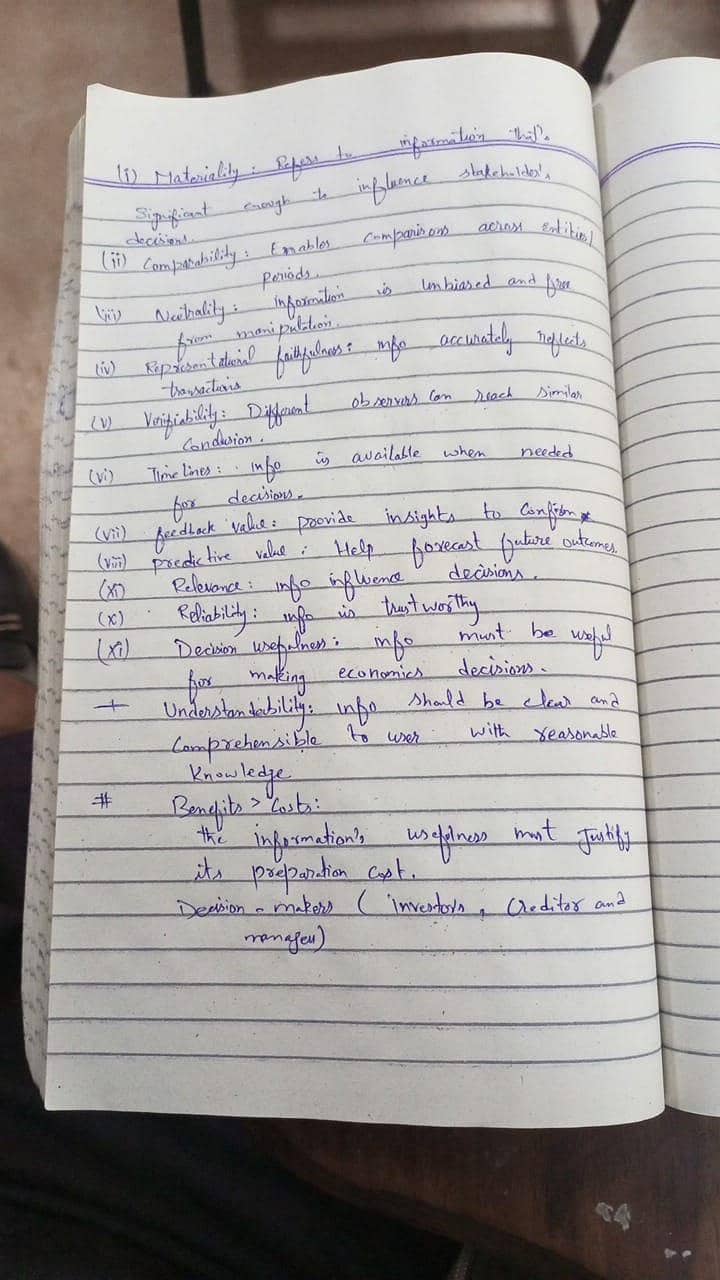 (i) Materiality : Refers to information that's
Significant enough to influence stakeholder's
decisions.
(ii) Comparability : Enables comparisons across entities/
periods.
(iii) Neutrality : information is unbiased and free
from manipulation.
(iv) Representational faithfulness : info accurately reflects
transactions
(v) Verifiability : Different observers can reach similar
Conclusion.
(vi) Timelines : info is available when needed
for decisions.
(vii) feedback value : provide insights to Confirm
(viii) predictive value : Help forecast future outcomes.
(xi) Relevance : info influence decisions.
(x) Reliability : info is trustworthy
(xi) Decision usefulness : info must be useful
for making economics decisions.
+ Understandability : info should be clear and
Comprehensible to user with reasonable
Knowledge
# Benefits > Costs :
the information's usefulness must Justify
its preparation cost.
Decision - makers ( investors, Creditor and
manager)